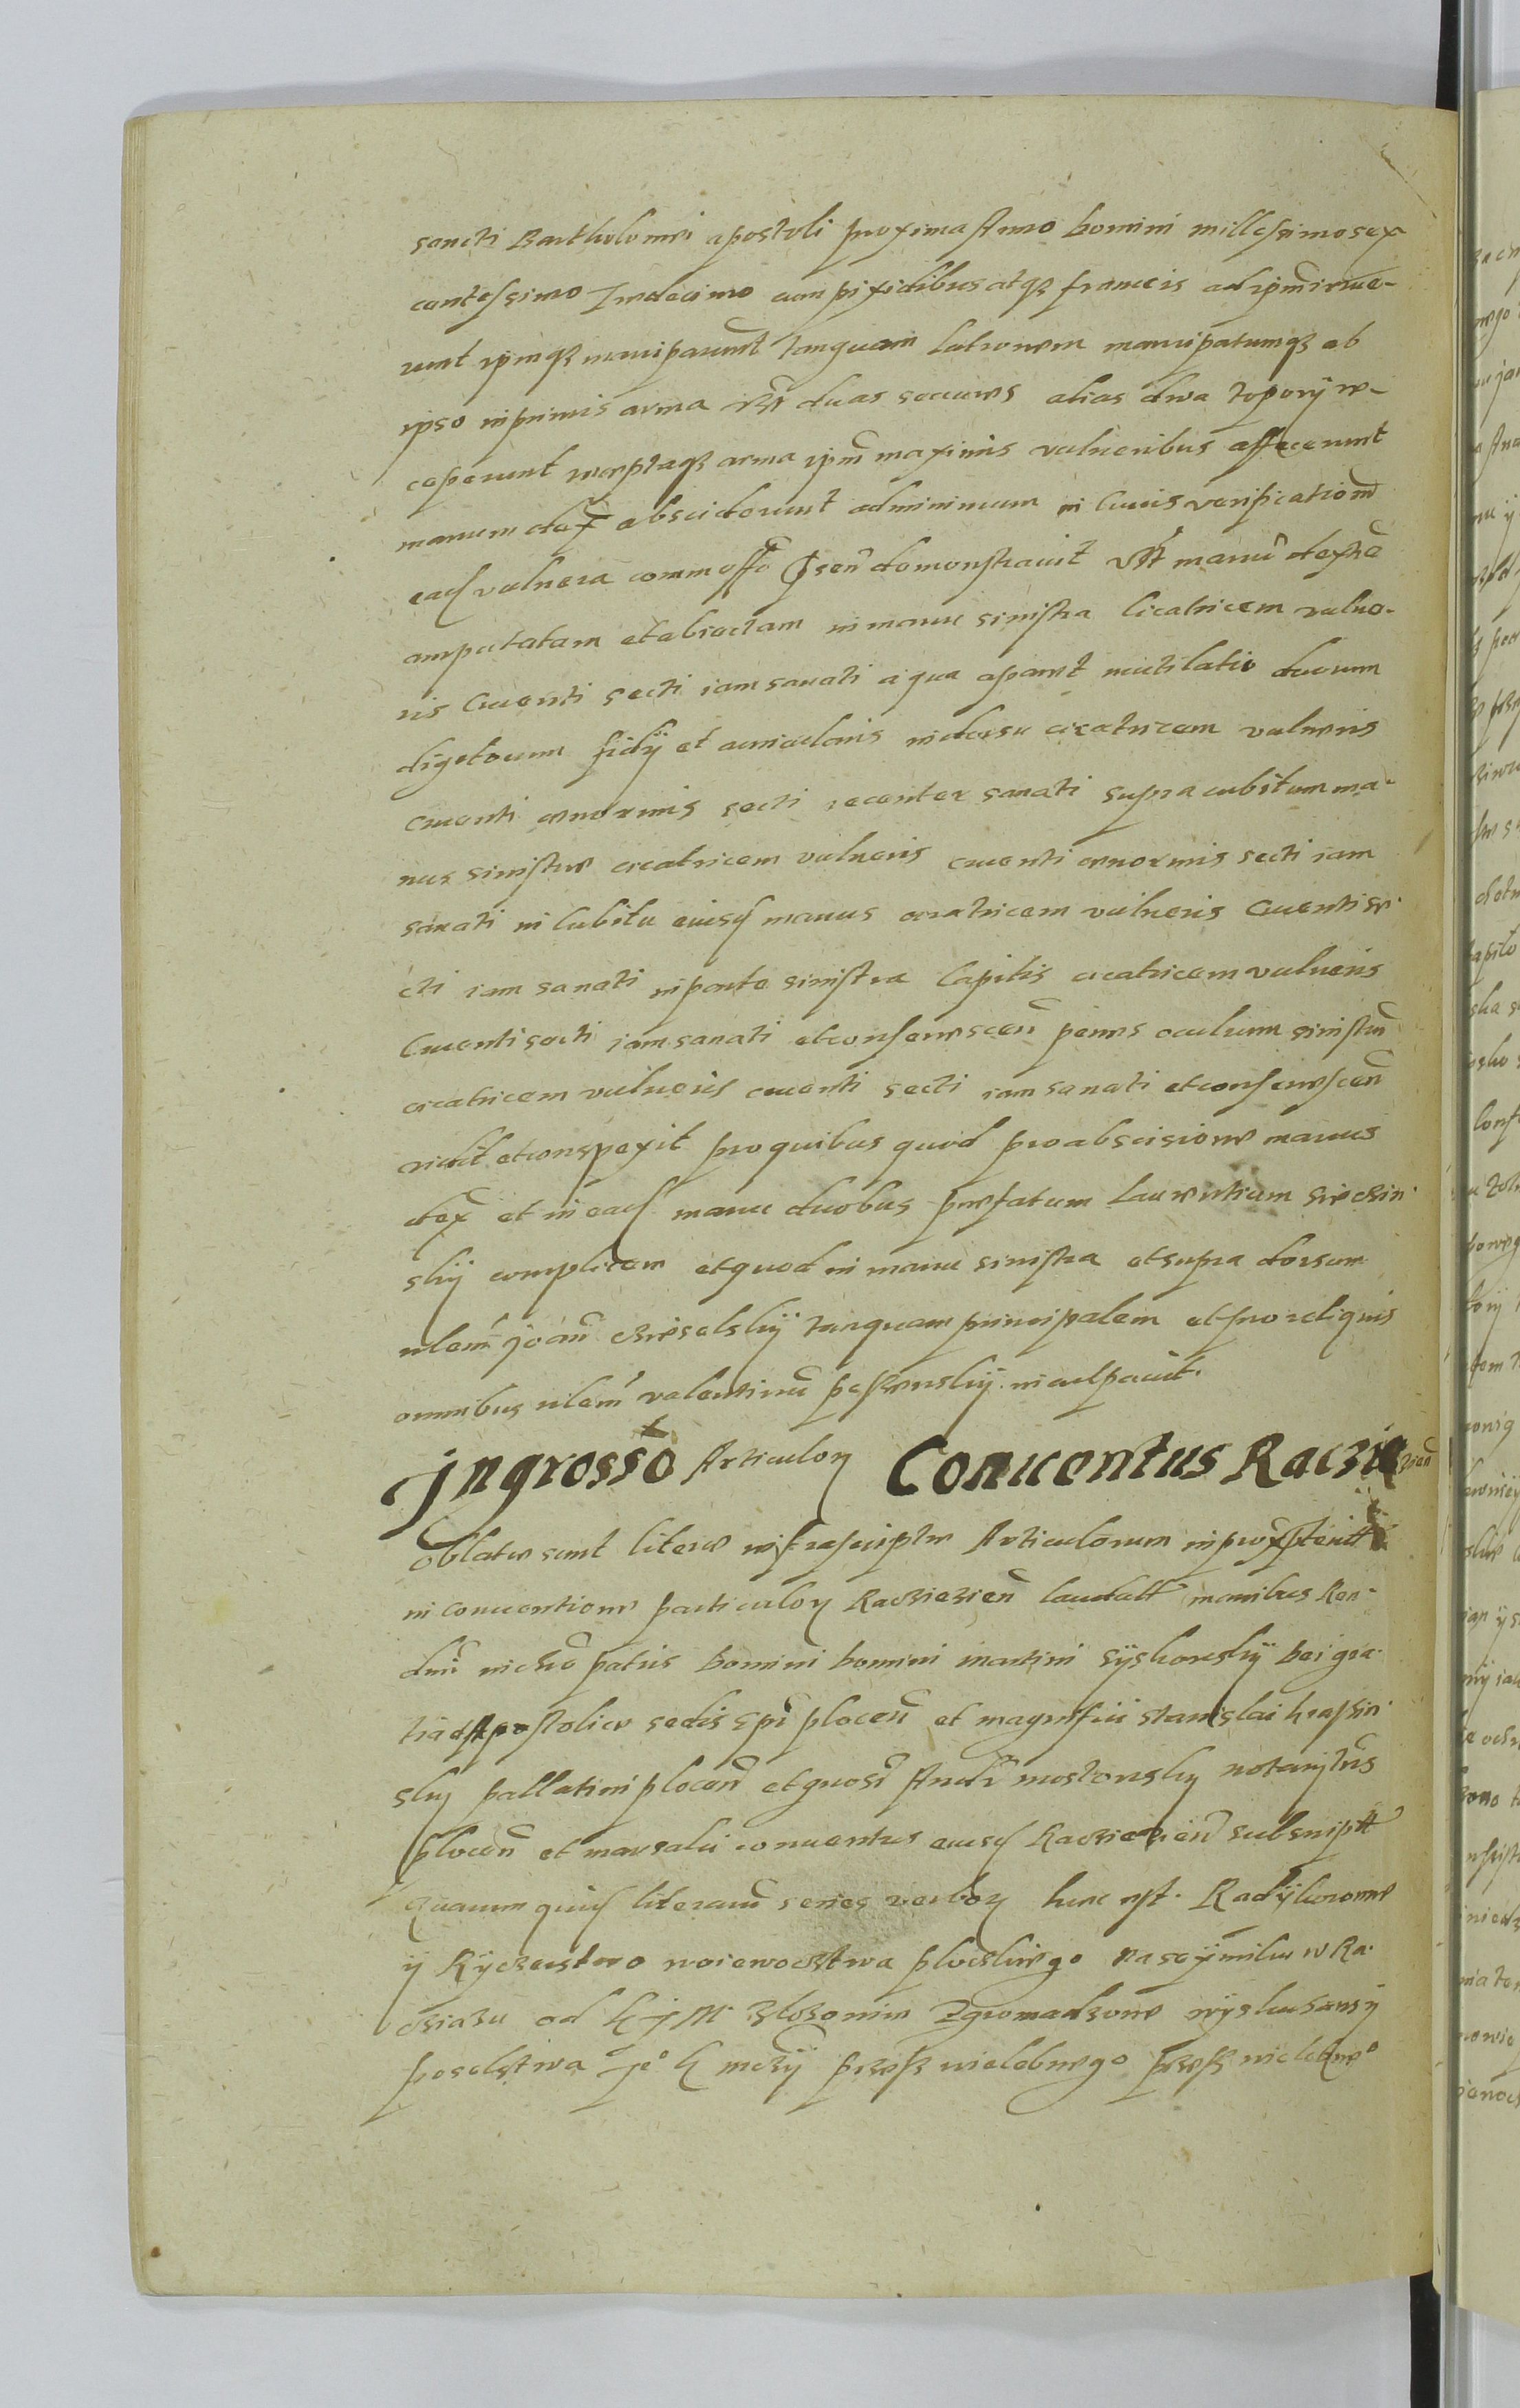 sancti Bartholomei apostoli proxima Anno Domini millessimo sex
centessimo Undecimo cum pixidibus atqz frameis ad ipm irrue-
runt ipmqz manciparunt tanquam latronem mancipatumqz ab
ipso inprimis arma vt duas secures alias dwa topory re-
ceperunt receptaqz arma ipm maximis vulneribus affecerunt
manum dex absciderunt ad minimum in cuius verificationem
ead vulnera demonstravit manu dextra
amputatam et abiectam in manu sinistra cicatricem vulne-
ris cruenti secti iam sanati a qua aparet mutilatio duorum
digitorum fidy et auricularis in dorsu cicatricem vulneris
cruenti enormis secti recenter sanati supra cubitum ma-
nus sinistre cicatricem vulneris cruenti enormis secti iam
sanati in cubitu eiusd manus cicatricem vulneris cruenti se-
cti iam sanati in parte sinistra capitis cicatricem vulneris
cruenti secti iam sanati et consenescen penes oculum sinistru
cicatricem vulneris cruenti secti iam sanati et consenescen
vidit et conspexit pro quibus quod pro abscisione manus
dex et in ead manu duobus prefatum Laurentium
sky complicem et quod in manu sinistra et supra dorsum
nlem Joan tanquam principalem et pro reliquis
omnibus nlem valentinu inculpavit.
Ingrosso Articulor Conuentus Raczia zien
Oblate sunt litere infrascripte Articulorum in
in Conventione particular Racziezien laudatt manibus Ren-
dmi patris Domini Domini Martini Syskowsky Dei gra-
tia et Apostolice sedis Epi plocen et magnifici Stanislai Krassin-
sky pallatini plocen et gnosi Andr notarij trs
plocen et marsalci conventus eiusd Racziezien subscriptt
Quarum quid literaru series verbor hunc est. Rady koronne
y Rycerstwo woiewodztwa plockiego na seymiku w Ra-
cziazu od K J M zlozonim Zgromadzone wysluchawsy
poselstwa Je° K mczy przesz wielebnego przesz wielebne°